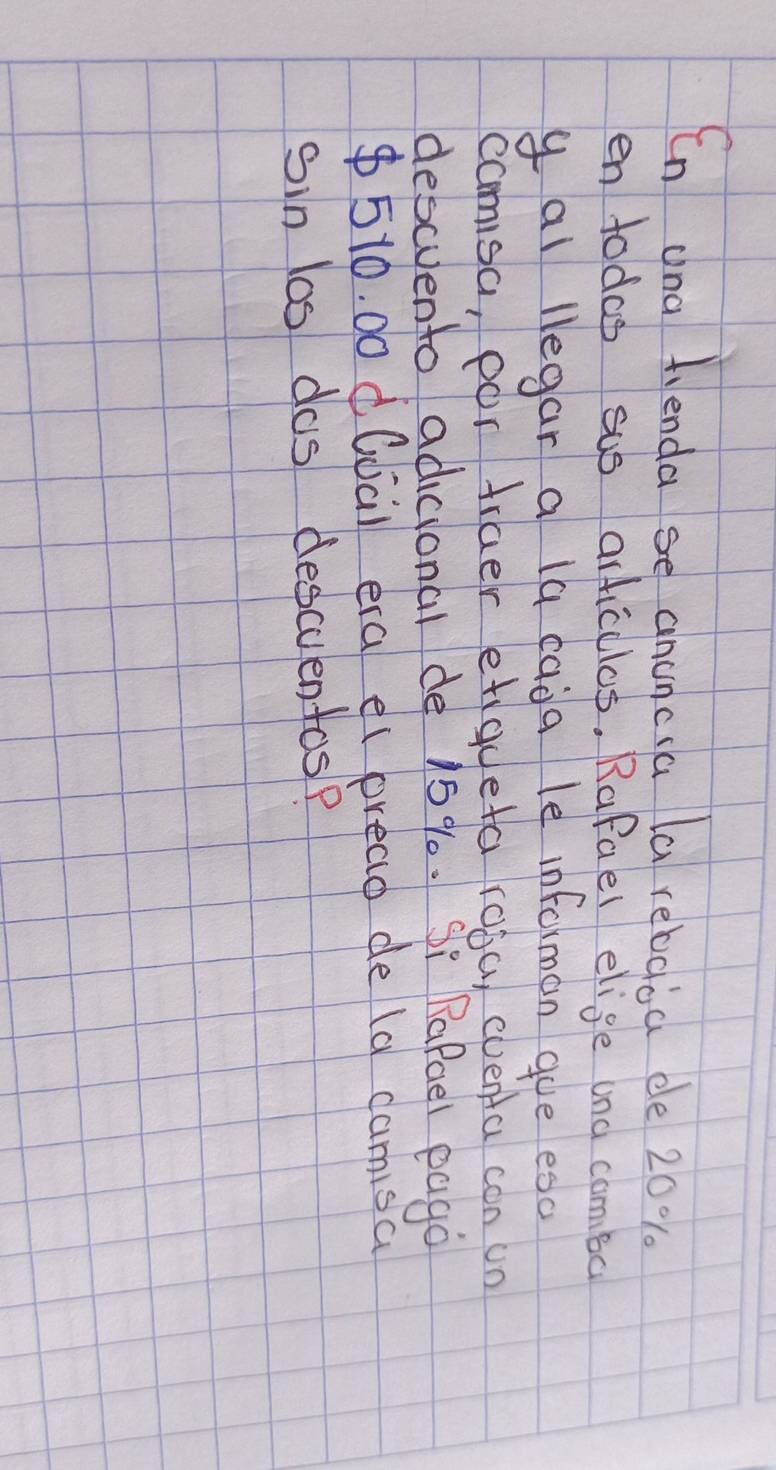 En una tienda se anuncia la rebaja de 20%
en todos sus artículos. Rafael elige una camisa
y al llegar a la caja le informan que esa
camisa, por traer etiqueta roja, cuenta con un
descuento adicional de 15%. Si Rafael pagó
$510.00 ¿Cuál era el precio de la camisa
sin los dos descuentos?